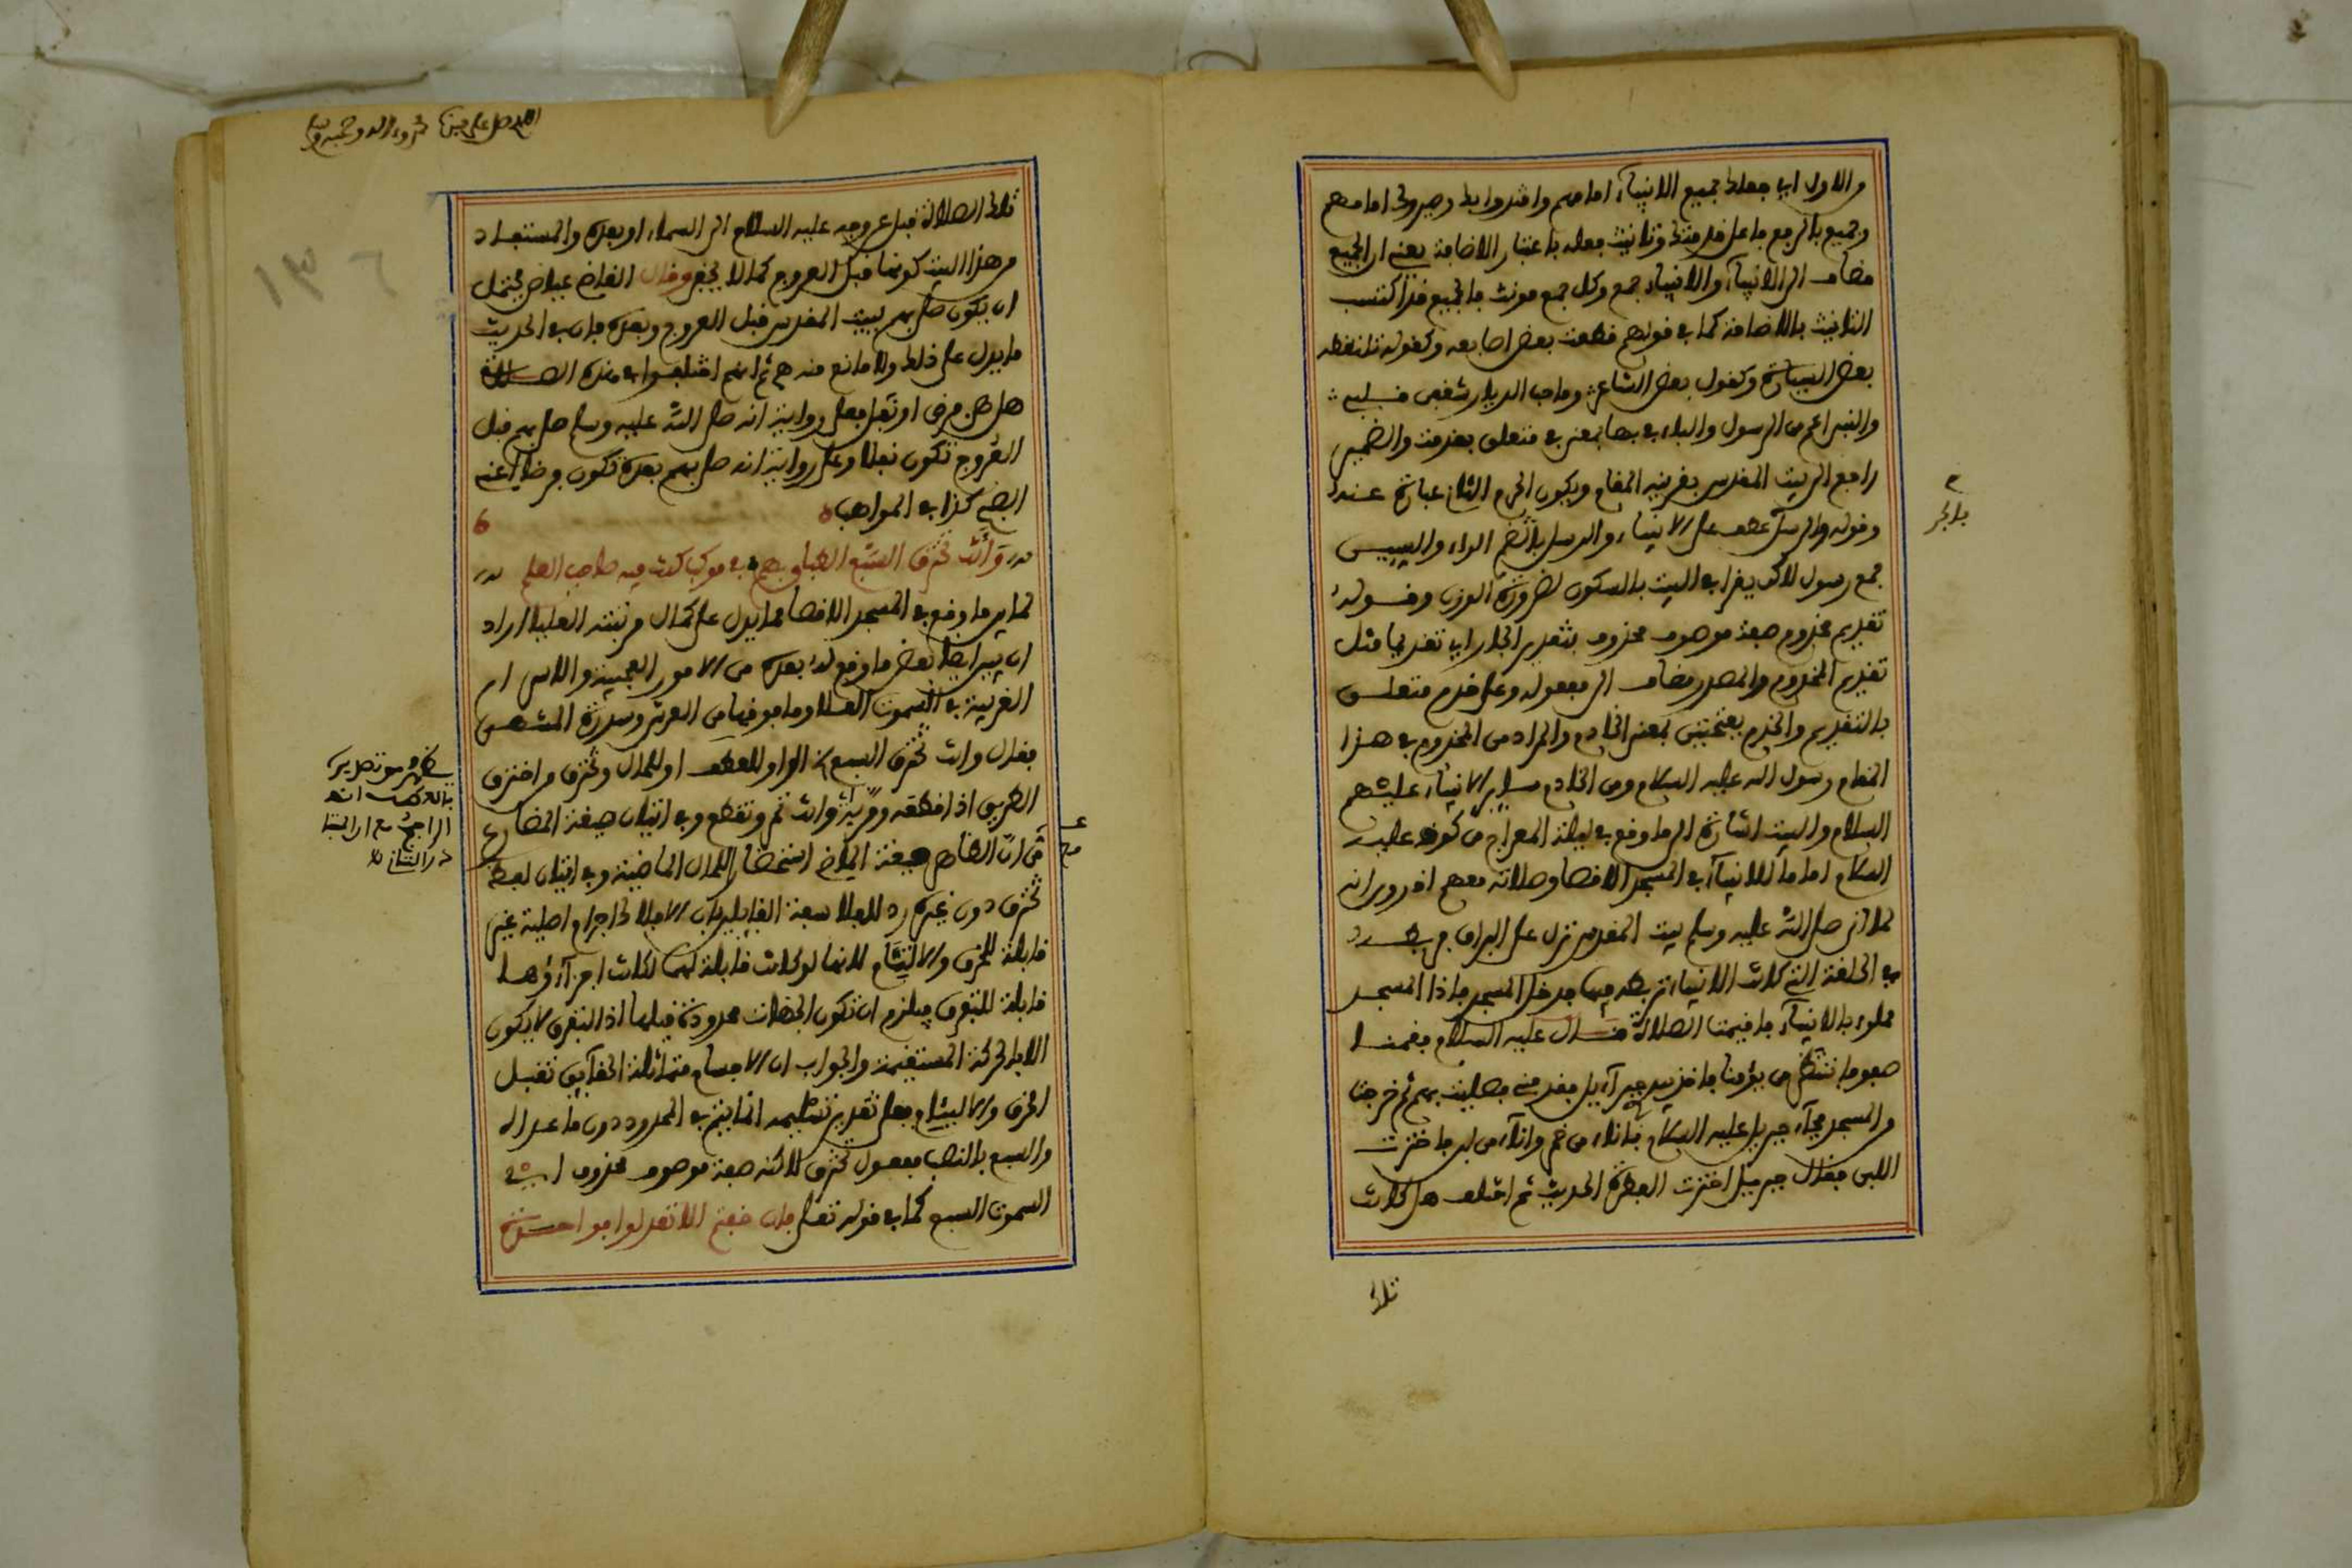 والاول اي جعلك جميع الانبياء امامهم واقتدوا بك وصيروك امامهم
وجميع بالرفع فاعل قدمتك وتانيث فعله باعتبار الاضافة يعني ان الجميع
مضاف الى الانبياء والانبياء جمع وكل جمع مونث فالجميع قد اكتسب
التانيث بالاضافة كما في قولهم قطعت بعض اصابعه وكقوله تلتقطه
بعض السيارة وكقول بعض الشاعر وما حب الديار شغفن قلبي
والنبي اعم من الرسول والباء في بها بمعنى في متعلق بقدمت والضمير
راجع الى بيت المقدس بقرينة المقام ويكون الحرم الثاني عبارة عنه
وقوله والرسل عطف على الانبياء والرسل بالضم الراء والسين
جمع رسول لاكن يقرا في البيت بالسكون لضرورة الوزن وقوله
تقديم مخدوم صفة موصوف محذوف بتقدير الجار اي تقديما مثل
تقديم المخدوم والمصدر مضاف الى مفعوله وعلى خدم متعلق
بالتقديم والخدم بفتحتين بمعنى الخادم والمراد من المخدوم في هذا
المقام رسول الله عليه السلام ومن الخادم ساير الانبياء عليهم
السلام والبيت اشارة الى ما وقع في ليلة المعراج من كونه عليه
السلام اماما للانبياء في المسجد الاقصا وصلاته معهم اذ روي انه
لما اتى صلى الله عليه وسلم بيت المقدس نزل على البراق فربطه
في الحلقة التي كانت الانبياء تربطه فيها فدخل المسجد فاذا المسجد
مملوء بالانبياء فاقيمت الصلاة قال عليه السلام فقمنا
صفوفا ننتظر من يؤمنا فاخذ بيدي جبرآئيل فقدمني فصليت بهم ثم خرجت
من المسجد فجآء جبريل عليه السلام باناء من خمر واناء من لبن فاخترت
اللبن فقال جبريل اخترت الفطرة الحديث ثم اختلف هل كانت
تلك
بالجر
اللهم صل على سيدنا محمد وءاله وصحبه وسلم
١٣٦
تلك الصلاة قبل عروجه عليه السلام الى السماء او بعده والمستفاد
من هذا البيت كونها قبل العروج كما لا يخفى وقال القاضي عياض يحتمل
ان يكون صلى بهم ببيت المقدس قبل العروج وبعده فان في الحديث
ما يدل على ذلك ولا مانع منه ثم انهم اختلفوا في هذه الصلاة
هل هي فرض او نفل فعلى رواية انه صلى الله عليه وسلم صلى بهم قبل
العروج تكون نفلا وعلى رواية انه صلى بهم بعده تكون فرضا اعني
الصبح كذا في المواهب
وانت تخترق السبع الطباق بهم في موكب كنت فيه صاحب العلم
لما بين ما وقع في المسجد الاقصا مما يدل على كمال مرتبته العليا اراد
ان يبين ايضا بعض ما وقع له بعده من الامور العجيبة والاسرار
الغريبة في السموت العلا وما فوقها من العرش وسدرة المنتهى
فقال وانت تخترق السبع الواو للعطف او للحال وتخترق من اخترق
الطريق اذا قطعه ومر به وانت تمر وتقطع وفي اتيان صيغة المضارع
مع ان الظاهر صيغة الماضي استحضار للحال الماضية وفي اتيان لفظ
تخترق دون غيره رد للفلاسفة القايلين بان الافلاك اجرام اصلية غير
قابلة للخرق والالتيام لانها لو كانت قابلة لهما لكانت اجزآؤها
قابلة للتفرق فيلزم ان تكون الجهات محدودة قبلها اذ التفرق لا يكون
الا بالحركة المستقيمة والجواب ان الاجسام متماثلة الحقايق تقبل
الخرق والالتيام فعلى تقدير تسليمه انما يتم في المحدد دون ما عداه
والسبع بالنصب مفعول تخترق لاكنه صفة موصوف محذوف اي
السموت السبع كما في قوله تعالى فان خفتم الا تعدلوا فواحدة